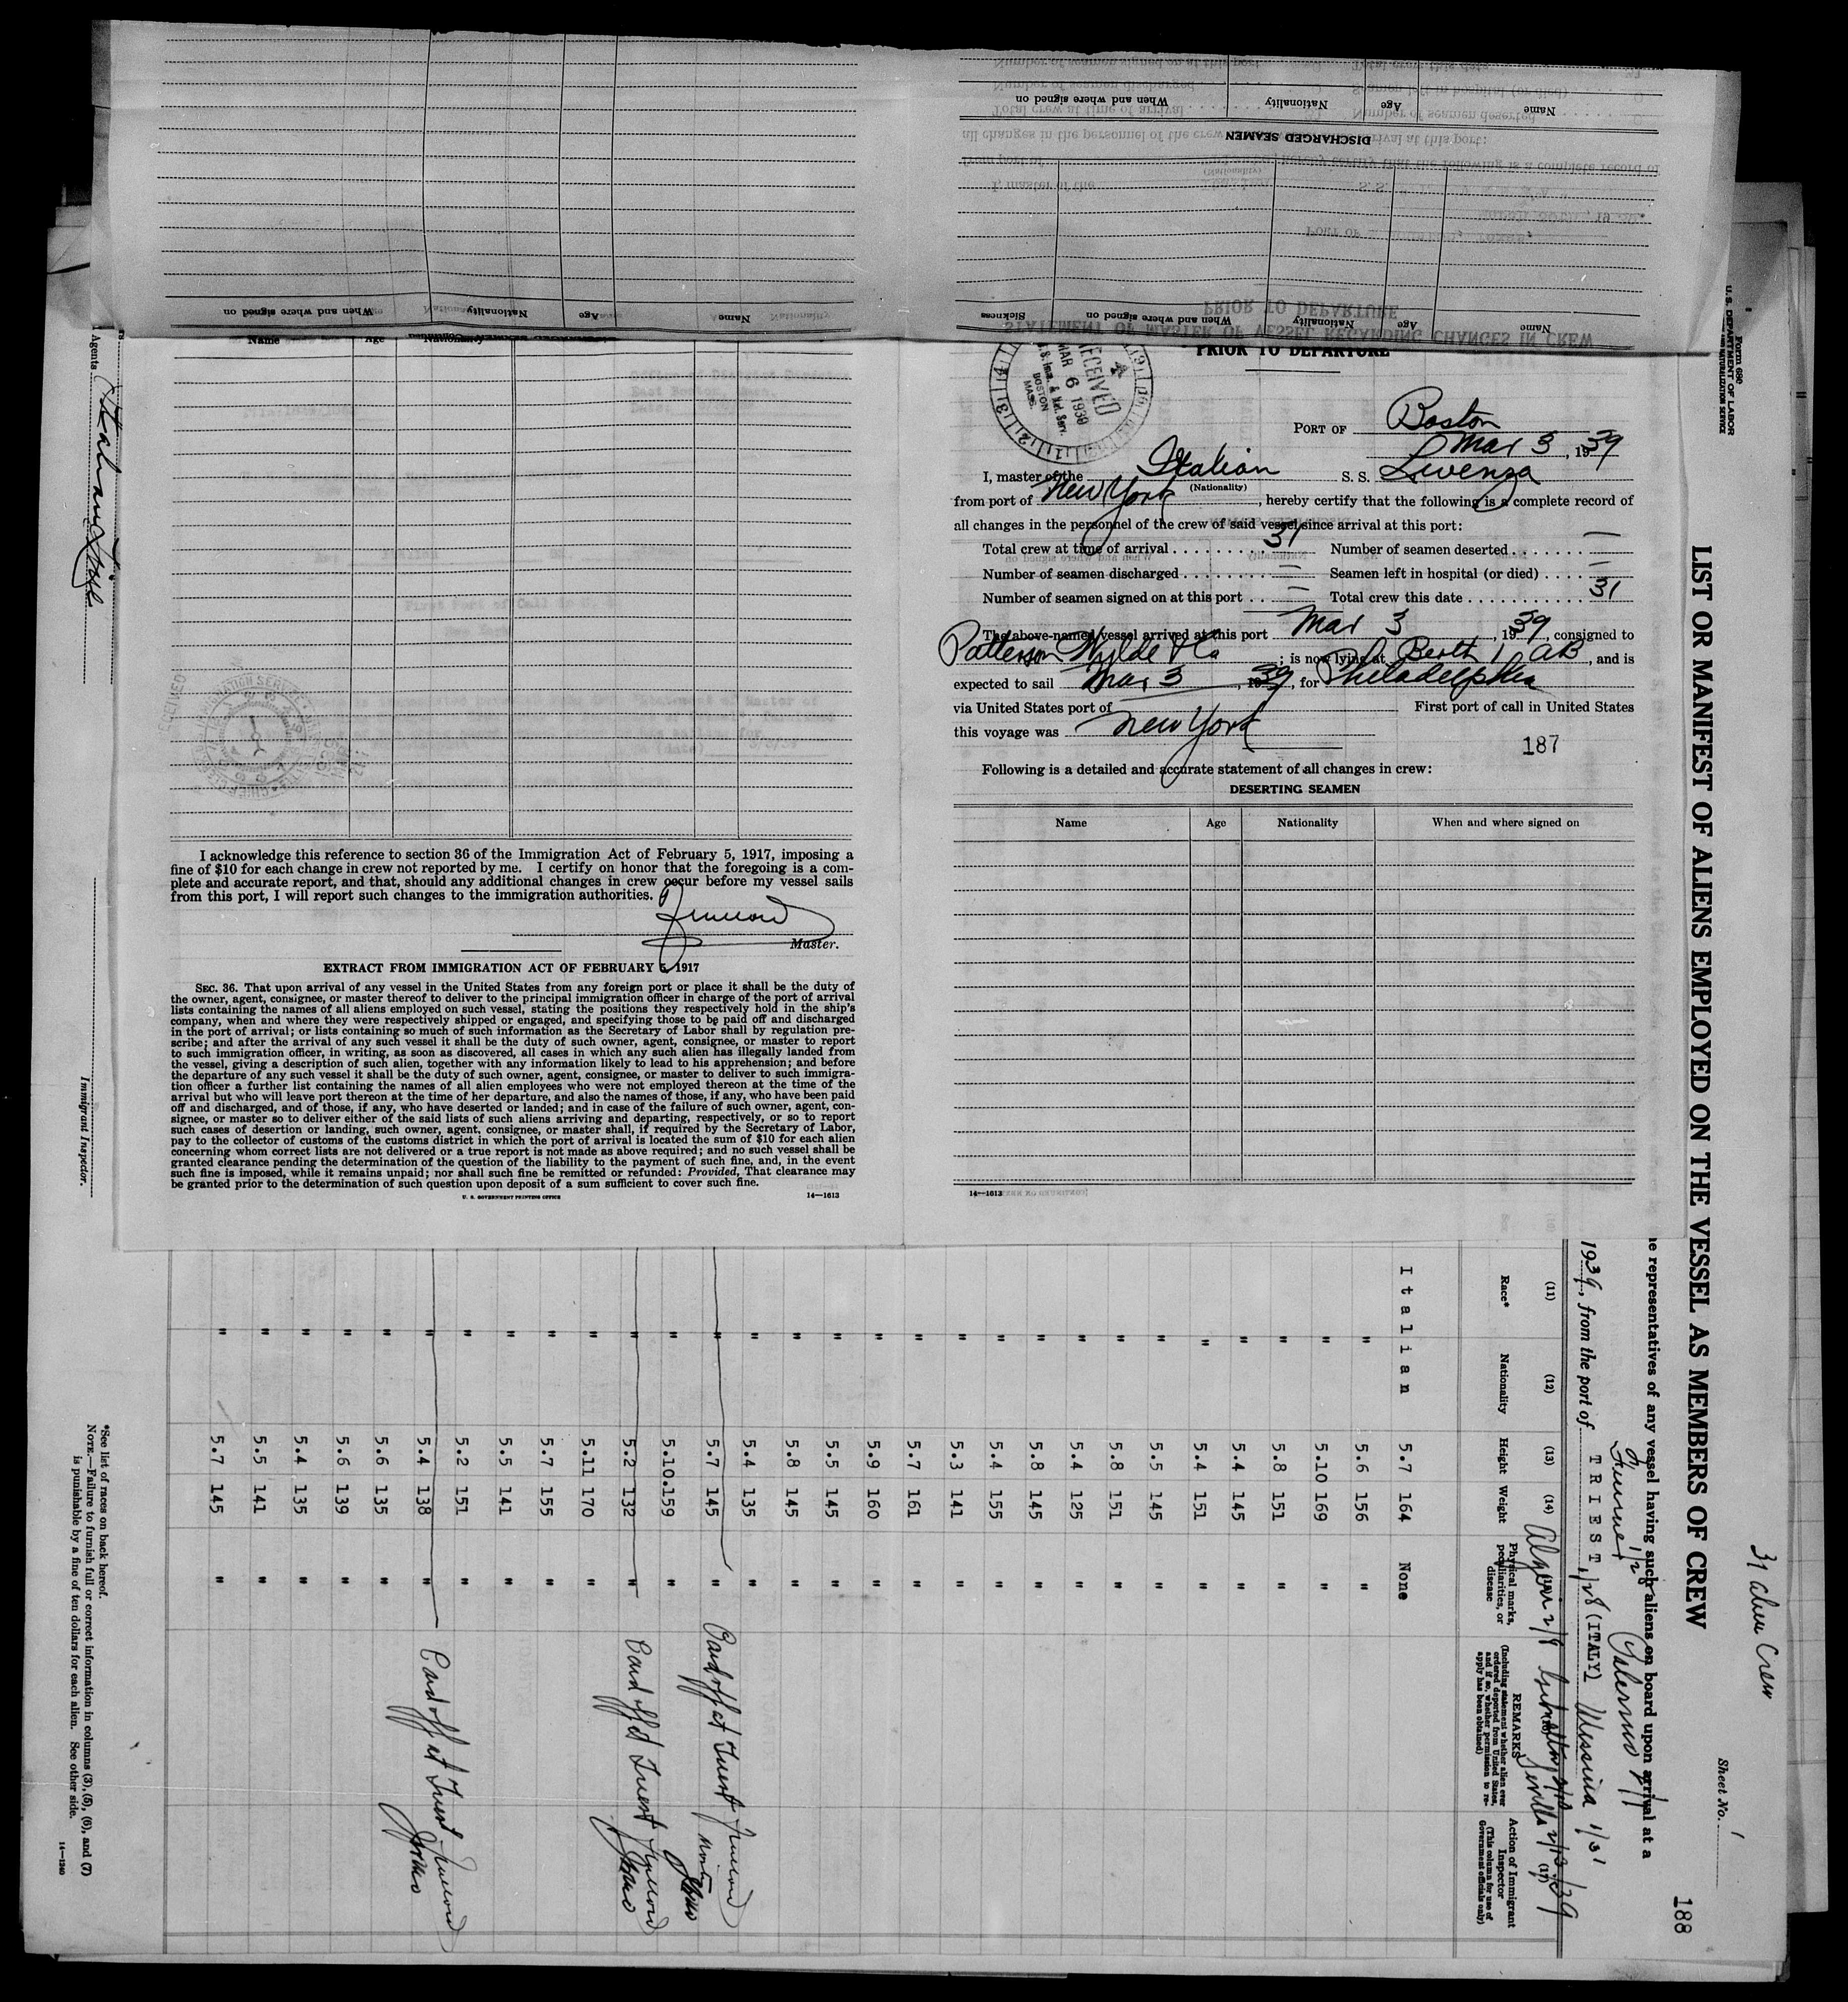 Name Age Nationality When and where signed on
DISCHARGED SEAMEN
Name Age Nationality When and where signed on Sickness
Name Age Nationality When and where signed on
PRIOR TO DEPARTURE
RECEIVED
MAR 6 1939
BOSTON
MASS.
PORT OF Boston
Mar 3, 1939
I, master of the Italian S. S. Livenza
(Nationality)
from port of New York, hereby certify that the following is a complete record of
all changes in the personnel of the crew of said vessel since arrival at this port:
Total crew at time of arrival . . . . . . . . . 31 Number of seamen deserted . . . . . . . —
Number of seamen discharged . . . . . . . . — Seamen left in hospital (or died) . . . . —
Number of seamen signed on at this port . . — Total crew this date . . . . . . . . . . . 31
The above-named vessel arrived at this port Mar 3, 1939, consigned to
Patterson Wylde & Co; is now lying at Berth 1 AB, and is
expected to sail Mar 3, 1939, for Philadelphia
via United States port of First port of call in United States
this voyage was New York
187
Following is a detailed and accurate statement of all changes in crew:
DESERTING SEAMEN
Name Age Nationality When and where signed on
14—1613
Name Age Nationality
I acknowledge this reference to section 36 of the Immigration Act of February 5, 1917, imposing a
fine of $10 for each change in crew not reported by me. I certify on honor that the foregoing is a com-
plete and accurate report, and that, should any additional changes in crew occur before my vessel sails
from this port, I will report such changes to the immigration authorities.
Master.
EXTRACT FROM IMMIGRATION ACT OF FEBRUARY 5, 1917
SEC. 36. That upon arrival of any vessel in the United States from any foreign port or place it shall be the duty of
the owner, agent, consignee, or master thereof to deliver to the principal immigration officer in charge of the port of arrival
lists containing the names of all aliens employed on such vessel, stating the positions they respectively hold in the ship's
company, when and where they were respectively shipped or engaged, and specifying those to be paid off and discharged
in the port of arrival; or lists containing so much of such information as the Secretary of Labor shall by regulation pre-
scribe; and after the arrival of any such vessel it shall be the duty of such owner, agent, consignee, or master to report
to such immigration officer, in writing, as soon as discovered, all cases in which any such alien has illegally landed from
the vessel, giving a description of such alien, together with any information likely to lead to his apprehension; and before
the departure of any such vessel it shall be the duty of such owner, agent, consignee, or master to deliver to such immigra-
tion officer a further list containing the names of all alien employees who were not employed thereon at the time of the
arrival but who will leave port thereon at the time of her departure, and also the names of those, if any, who have been paid
off and discharged, and of those, if any, who have deserted or landed; and in case of the failure of such owner, agent, con-
signee, or master so to deliver either of the said lists of such aliens arriving and departing, respectively, or so to report
such cases of desertion or landing, such owner, agent, consignee, or master shall, if required by the Secretary of Labor,
pay to the collector of customs of the customs district in which the port of arrival is located the sum of $10 for each alien
concerning whom correct lists are not delivered or a true report is not made as above required; and no such vessel shall be
granted clearance pending the determination of the question of the liability to the payment of such fine, and, in the event
such fine is imposed, while it remains unpaid; nor shall such fine be remitted or refunded: Provided, That clearance may
be granted prior to the determination of such question upon deposit of a sum sufficient to cover such fine.
U. S. GOVERNMENT PRINTING OFFICE 14—1613
Form 680
U. S. DEPARTMENT OF LABOR
31 alien Crew
Sheet No. 1
188
LIST OR MANIFEST OF ALIENS EMPLOYED ON THE VESSEL AS MEMBERS OF CREW
representatives of any vessel having such aliens on board upon arrival at a
Fiume 1/28 Palermo 2/1
1939, from the port of TRIEST, 1/28 (ITALY) Messina 1/31
(11) (12) (13) (14) (17)
Race* Nationality Height Weight Physical marks, peculiarities, or disease
REMARKS
(Including statement whether alien ever ordered deported from United States, and if so, whether permission to re-apply has been obtained)
Action of Immigrant Inspector
(This column for use of Government officials only)
Italian 5.7 164 None
" 5.6 156 "
" 5.10 169 "
" 5.8 151 "
" 5.4 145 "
" 5.4 151 "
" 5.5 145 "
" 5.8 151 "
" 5.4 125 "
" 5.8 145 "
" 5.4 155 "
" 5.3 141 "
" 5.7 161 "
" 5.9 160 "
" 5.5 145 "
" 5.8 145 "
" 5.4 135 "
" 5.7 145 " Paid off at Triest
" 5.10.159 "
" 5.2 132 " Paid off at Triest
" 5.11 170 "
" 5.7 155 "
" 5.5 141 "
" 5.2 151 "
" 5.4 138 " Paid off at Triest
" 5.6 135 "
" 5.6 139 "
" 5.4 135 "
" 5.5 141 "
" 5.7 145 "
*See list of races on back hereof.
NOTE.—Failure to furnish full or correct information in columns (3), (5), (6), and (7)
is punishable by a fine of ten dollars for each alien. See other side.
14—1240
Agents
Immigrant Inspector.